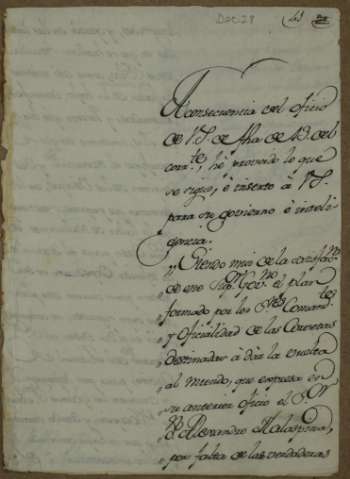 Doc: 28
A consecuencia del oficio
de V.S. de fha de 13. del
corr.te, hé proveido lo que
se sigue, é inserto á V.S.
para su govierno é inteli-
gencia.
„ Siendo mui de la
de este Sup.or Gov.no el plan
„ formado por los S.res Comand.tes
„ y Oficialidad de las Corvetas
„ destinadas á dár la vuelta
„ al Mundo, que expresa en
„ su anterior oficio el S.or
„ D. Alexandro Malaspina,
„ por falta de las verdaderas